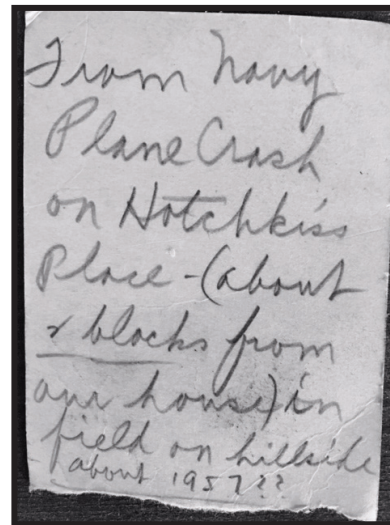 From Navy
Plane Crash
on Hotchkiss
Place - (about
2 blocks from
our house) in
field on hillside
about 1957??